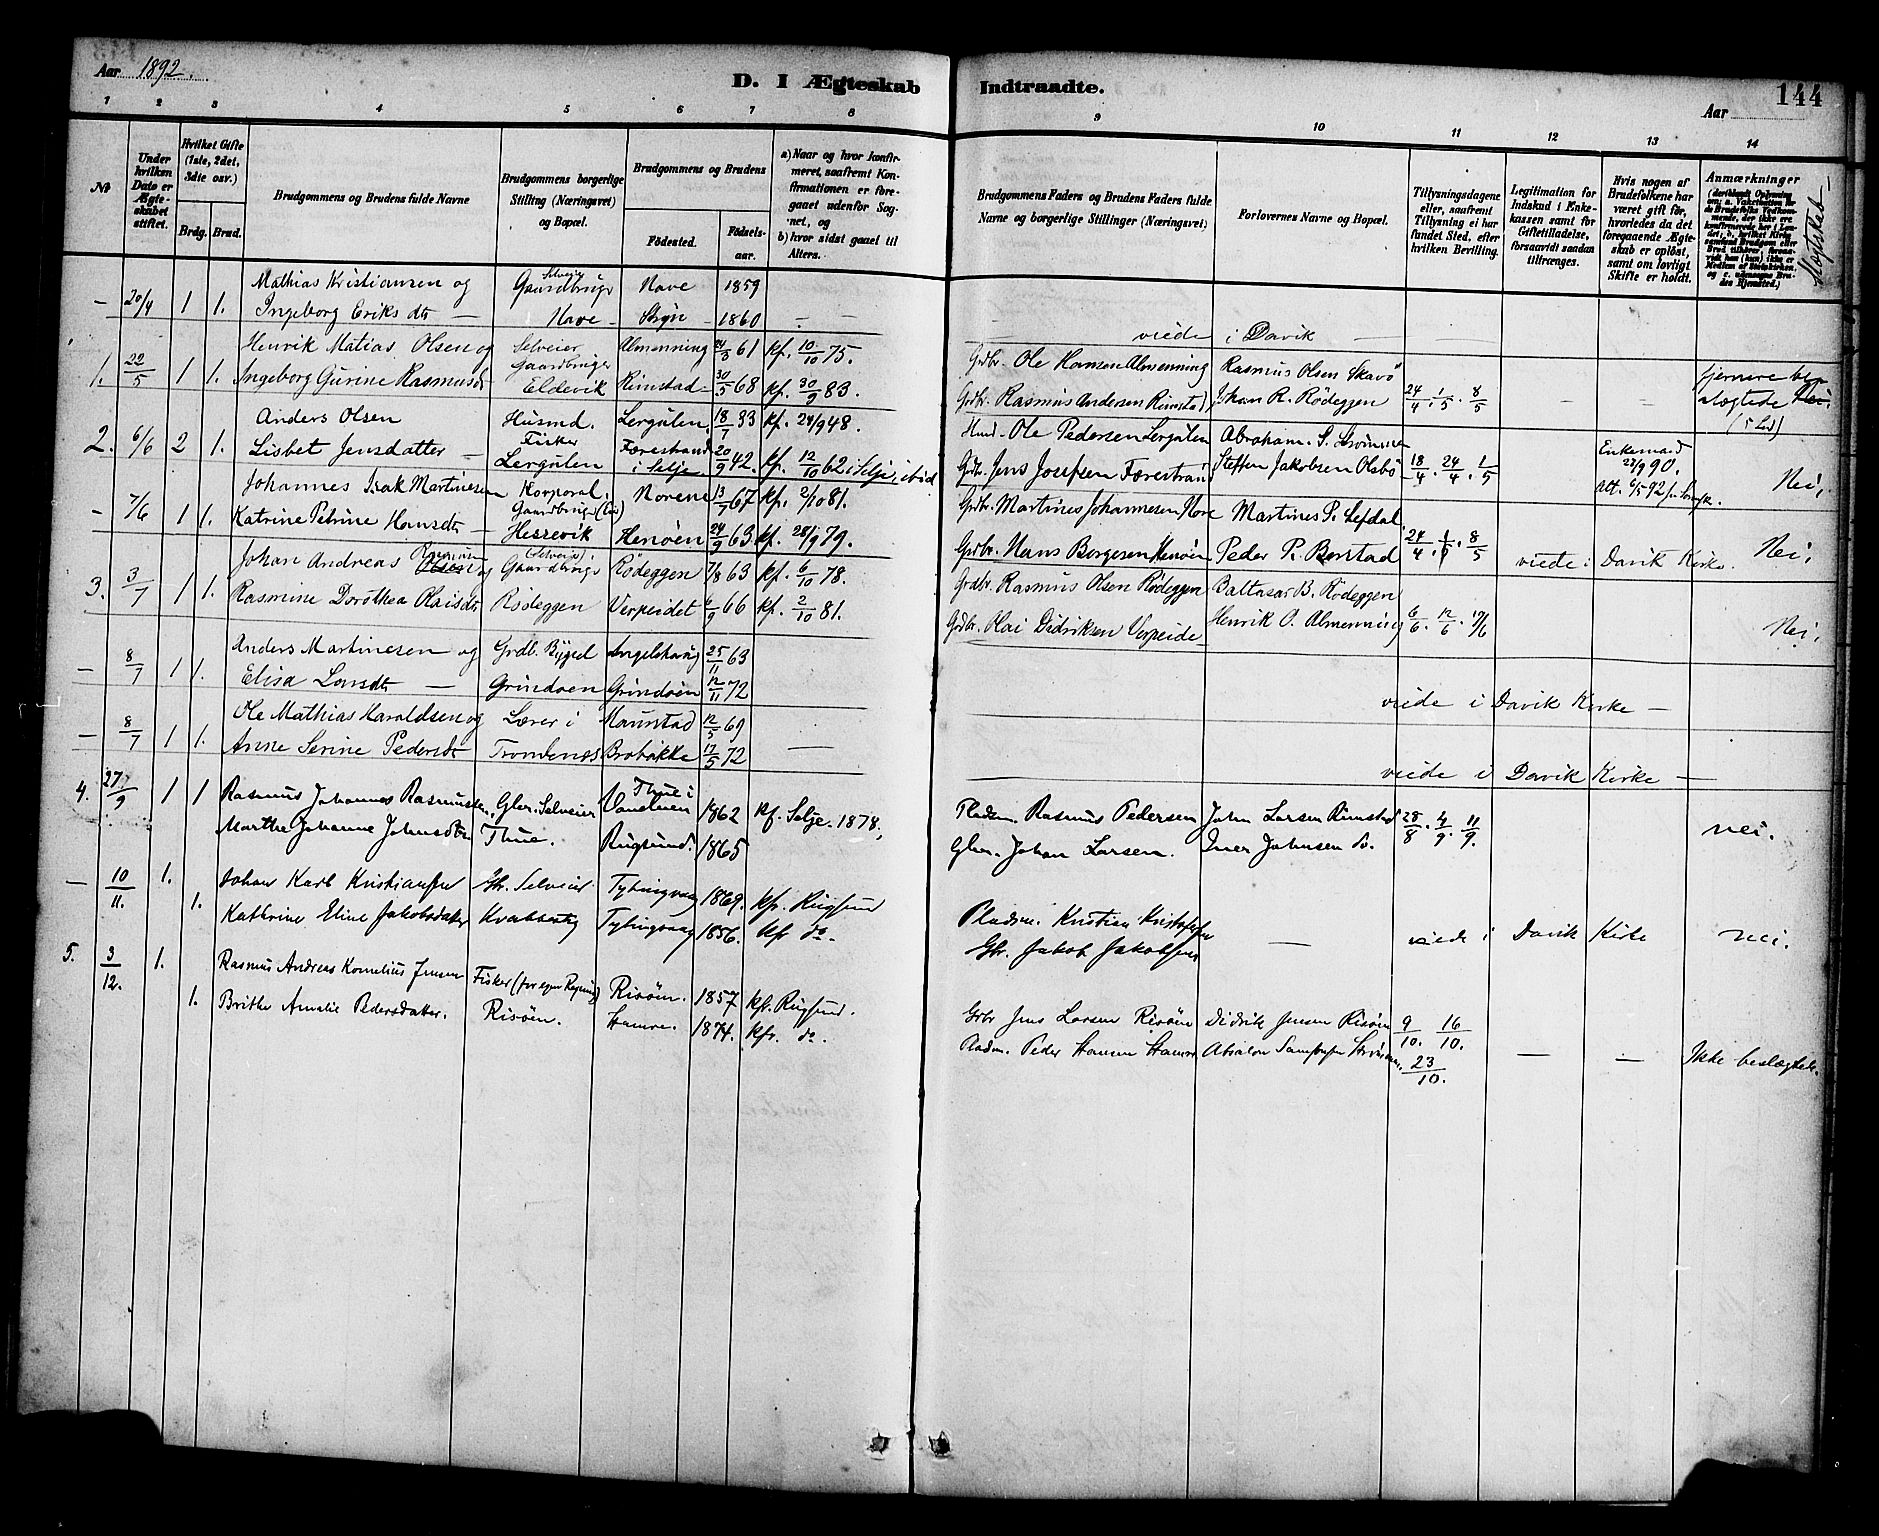 Aar 1892.
D. I Ægteskab
Indtraadte.
144
Aar
1 2 3 4 5 6 7 8
9 10 11 12 13 14
№
Under hvilken Dato er Ægteskabet stiftet.
Hvilket Gifte (1ste, 2det, 3die osv.)
Brdg. Brud.
Brudgommens og Brudens fulde Navne
Brudgommens borgerlige Stilling (Næringsvei) og Bopæl.
Brudgommens og Brudens
Fødested.
Fødselsaar.
a) Naar og hvor konfirmeret, saafremt Konfirmationen er foregaaet udenfor Sognet, og
b) hvor sidst gaaet til Alters.
Brudgommens Faders og Brudens Faders fulde Navne og borgerlige Stillinger (Næringsvei)
Forlovernes Navne og Bopæl.
Tillysningsdagene eller, saafremt Tillysning ei har fundet Sted, efter hvilken Bevilling.
Legitimation for Indskud i Enkekassen samt for Giftetilladelse, forsaavidt saadan tiltrænges.
Hvis nogen af Brudefolkene har været gift før, hvorledes da det foregaaende Ægteskab er opløst, samt om lovligt Skifte er holdt.
Anmærkninger
Slægtskab
— 20/4 1 1. Mathias Kristiansen og Selveier Gaardbruger Nave 1859
Ingeborg Eriksdtr — Nave — Stryn — 1860 — —
viede i Davik — —
1. 22/5 1 1. Henrik Matias Olsen og Selveier Gaardbruger Almenning 24/3 61 kf. 10/10 75.
Ingeborg Gurine Rasmusdt Eldevik Rimstad 30/5 68 kf. 30/9 83.
Grdbr. Ole Hansen Almenning Rasmus Olsen Skavø
Grdbr. Rasmus Andersen Rimstad Johan R. Rödeggen 24/4. 1/5. 8/5 — — fjernere beslægtede Nei. (5 Led)
2. 6/6 2 1. Anders Olsen Husmd. Lergulen 18/7 33 kf. 24/9 48.
Lisbet Jensdatter — Fisker Lergulen Færestrand i Selje 20/9 42. kf. 12/10 62 i Selje, ibid
Husd. Ole Pedersen Lergulen Abraham S. Strømmen
Grdbr. Jens Josefsen Færestrand Steffen Jakobsen Olsbö 18/4. 24/4. 1/5 Enkemand 28/9 90. Att. 6/5 92 fr. Nei.
— 7/6 1 1. Johannes Isak Martinesen Korporal, Gaardbruger Norene 13/7 67 kf. 2/10 81.
Katrine Petrine Hansdtr — Hessevik Henöen 24/9 63 kf. 28/9 79.
Grdbr. Martines Johannesen Nore Martines P. Lefdal
Grdbr. Hans Borgesen Henöen Peder P. Borstad 24/4. 1/5. 8/5 viede i Davik Kirke. Nei,
3. 3/7 1 1. Johan Andreas Rasmussen Olsen og (Selveier) Gaardbruger Rödeggen 7/8 63 kf. 6/10 78.
Rasmine Dorothea Olaisdtr Rödeggen Verpeidet 6/9 66 kf. 2/10 81.
Grdbr. Rasmus Olsen Rödeggen Baltasar B. Rödeggen
Grdbr. Olai Didriksen Verpeide Henrik O. Almenning 6/6. 12/6. 19/6 Nei,
— 8/7 1 1. Anders Martinesen og Grdb. Bygsel 25/11 63
Elisa Larsdtr — Grindöen Grindöen 12/11 72
viede i Davik Kirke —
— 8/7 1 1. Ole Mathias Haraldsen og Lærer i Maurstad 12/5 69
Anne Serine Pedersdt Trondenes Brobakke 17/5 72 —
viede i Davik Kirke —
4. 27/9 1 1 Rasmus Johannes Rasmussen, Gbr. Selveier Thue i Vanelven 1862 kf. Selje 1878,
Marthe Johanne Johnsdtr Thue. Rugsund. 1865
Pladsm. Rasmus Pedersen John Larsen Rimstad 28/8 4/9 11/9.
Gbr. Johan Larsen. Iver Johnsen do. nei.
— 10/11. 1. Johan Karl Kristiansen Gbr. Selveier Tytingvaag 1869. kfr. Rugsund
1. Kathrine Eline Jakobsdatter Kvalsteig Tytingvaag 1856. kfr do.
Pladsm. Kristian Kristofersen
Gbr. Jakob Jakobsen — viede i Davik Kirke nei.
5. 3/12. 1. Rasmus Andreas Kornelius Jensen Fisker (for egen Regning) Risöen. 1857 kfr. Rugsund.
1. Brithe Amalie Pedersdatter. Risöen. Hamre. 1874. kfr. do.
Grbr Jens Larsen Risöen Didrik Jensen Risöen 9/10. 16/10.
Pladsm. Peder Hansen Hamre Absalon Samsonsen 23/10. — — Ikke beslægtede.